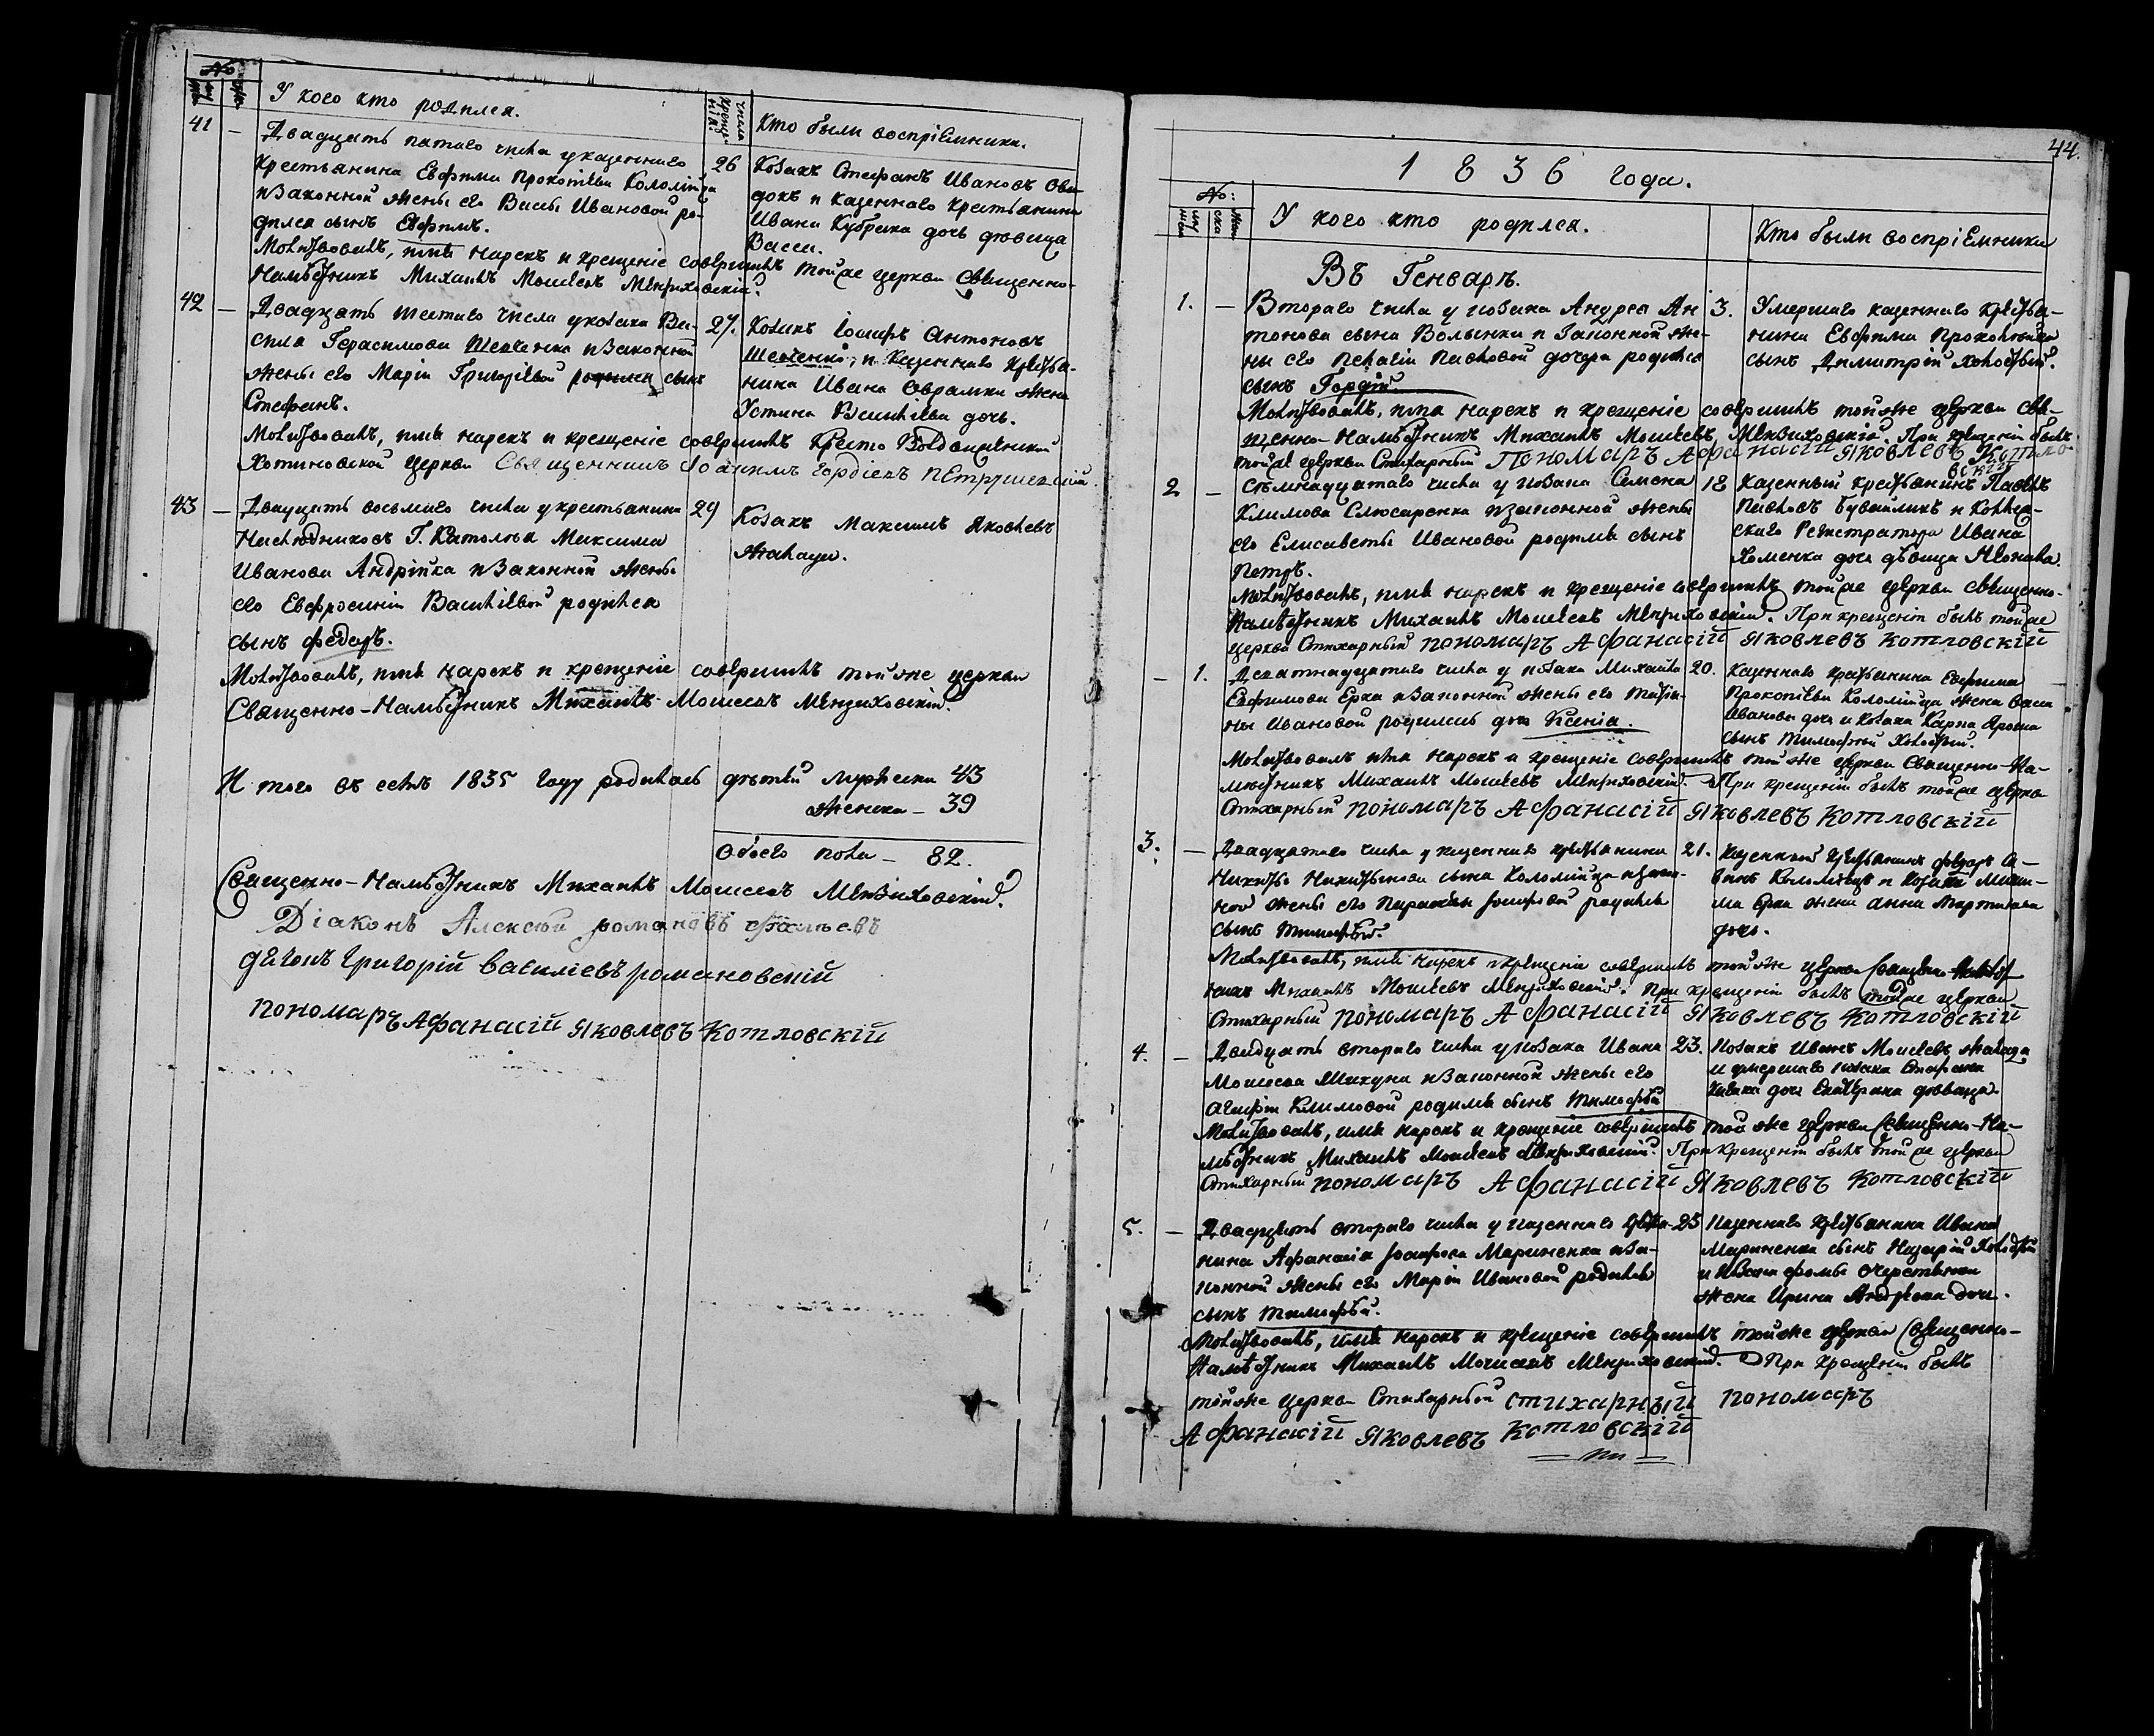 №
У кого кто родился.
числа крещенія.
Кто были воспріемники.
41 — Двадцять пятаго числа у казеннаго
крестьянина Евфима Прокопіева Коломійца
и законной жены его Васы Ивановой ро-
дился сынъ Евфимъ.
26
Козакъ Стефанъ Ивановъ
докъ и казеннаго крестьянина
Ивана Кубрака дочь дѣвица
Васса.
Молитвовалъ, имя нарекъ и крещеніе совершилъ тойже церкви Священно-
Намѣстникъ Михаилъ Моисеевъ
42 — Двадцять шестаго числа у козака Ва-
силя Герасимова Шевченка и законной
жены его Маріи Григоріевой родился сынъ
Стефанъ.
27.
Козакъ Іосифъ Антоновъ
Шевченко, и казеннаго крестья-
нина Ивана Аврамка жена
Устина Васильева дочь.
Молитвовалъ, имя нарекъ и крещеніе совершилъ Кресто Воздвиженской
Хотиновской церкви Священникъ Іоакимъ Гордіевъ Петрушевскій.
43 — Двацять восьмаго числа у крестьянина
Наслѣдниковъ Г. Католѣя Максима
Иванова Андрійка и законной жены
его Евфросиніи Васильевой родился
сынъ Федоръ.
29
Козакъ Максимъ Яковлевъ
Молитвовалъ, имя нарекъ и крещеніе совершилъ той же церкви
Священно-Намѣстникъ Михаилъ Моисеевъ
И того въ семъ 1835 году родилось дѣтей мужеска 43
женска — 39
Обоего пола — 82.
Священно-Намѣстникъ Михаилъ Моисеевъ
Діаконъ Алексѣй Романовъ
Григорій Василіевъ Романовскій
Пономаръ Афанасій Яковлевъ Котловскій
44.
1836 года.
№:
У кого кто родился.
Кто были воспріемники
Въ Генварѣ.
1. — Втораго числа у козака Андрея Ан
тонова сына Волынки и законной же-
ны его Пелагіи Павловой дочери родился
сынъ Гордій
3.
Умершаго казеннаго крестья-
нина Евфима Прокопѣнка
сынъ Димитрій холостый.
Молитвовалъ, имя нарекъ и крещеніе совершилъ той же церкви Свя-
щенно-Намѣстникъ Михаилъ Моисеевъ При крещеніи былъ
тойже церкви Стихарный Пономаръ Афанасій Яковлевъ Котло
вскій
2 — Сѣмнадцатаго числа у козака Семена
Климова Слюсаренка и законной жены
его Елисаветы Ивановой родился сынъ
Петръ.
18
Казенный крестьянинъ Павелъ
Павловъ и Коллеж-
скаго Регистратора Ивана
Хоменка дочь дѣвица
Молитвовалъ, имя нарекъ и крещеніе совершилъ тойже церкви Священно-
Намѣстникъ Михаилъ Моисеевъ При крещеніи былъ тойже
церкви Стихарный пономаръ Афанасій Яковлевъ Котловскій
— 1. Девятнадцатаго числа у козака Михаила
Евфимова Ерка и законной жены его Татія-
ны Ивановой родилась дочь Ксенія.
20.
Казеннаго крестьянина Евфима
Прокопіева Коломійца жена Васса
Иванова дочь и козака Карпа
сынъ Тимофей холостый.
Молитвовалъ имя нарекъ и крещеніе совершилъ той же церкви Священно-На-
мѣстникъ Михаилъ Моисеевъ При крещеніи былъ тойже церкви
Стихарный пономаръ Афанасій Яковлевъ Котловскій
3. — Двадцатаго числа у казеннаго крестьянина
Никиты Никитѣнова сына Коломійца и закон-
ной жены его Параскевы Іосифовой родился
сынъ Тимофей.
21.
Казенный крестьянинъ Федоръ
Коломіецъ и козака
Ерка жена Анна Мартинова
дочь.
Молитвовалъ, имя нарекъ и крещеніе совершилъ той же церкви Священно-Намѣст
никъ Михаилъ Моисеевъ При крещеніи былъ тойже церкви
Стихарный пономаръ Афанасій Яковлевъ Котловскій
4. — Двадцять втораго числа у козака Ивана
Моисеева и законной жены его
Агафіи Климовой родился сынъ Тимофей
23.
Козакъ Иванъ Моисеевъ
и умершаго козака Стефана
дочь Екатерина дѣвица.
Молитвовалъ, имя нарекъ и крещеніе совершилъ той же церкви Священно-На-
мѣстникъ Михаилъ Моисеевъ При крещеніи былъ тойже церкви
Стихарный пономаръ Афанасій Яковлевъ Котловскій
5. — Двадцять втораго числа у казеннаго крестья-
нина Афанасія Іосифова Мариненка и за-
конной жены его Маріи Ивановой родился
сынъ Тимофей.
25
Казеннаго крестьянина Ивана
Мариненка сынъ Назарій холостый
и козака Фомы
жена Ирина Андреева дочь.
Молитвовалъ, имя нарекъ и крещеніе совершилъ тойже церкви Священно-
Намѣстникъ Михаилъ Моисеевъ При крещеніи былъ
тойже церкви Стихарный стихарный пономаръ
Афанасій Яковлевъ Котловскій